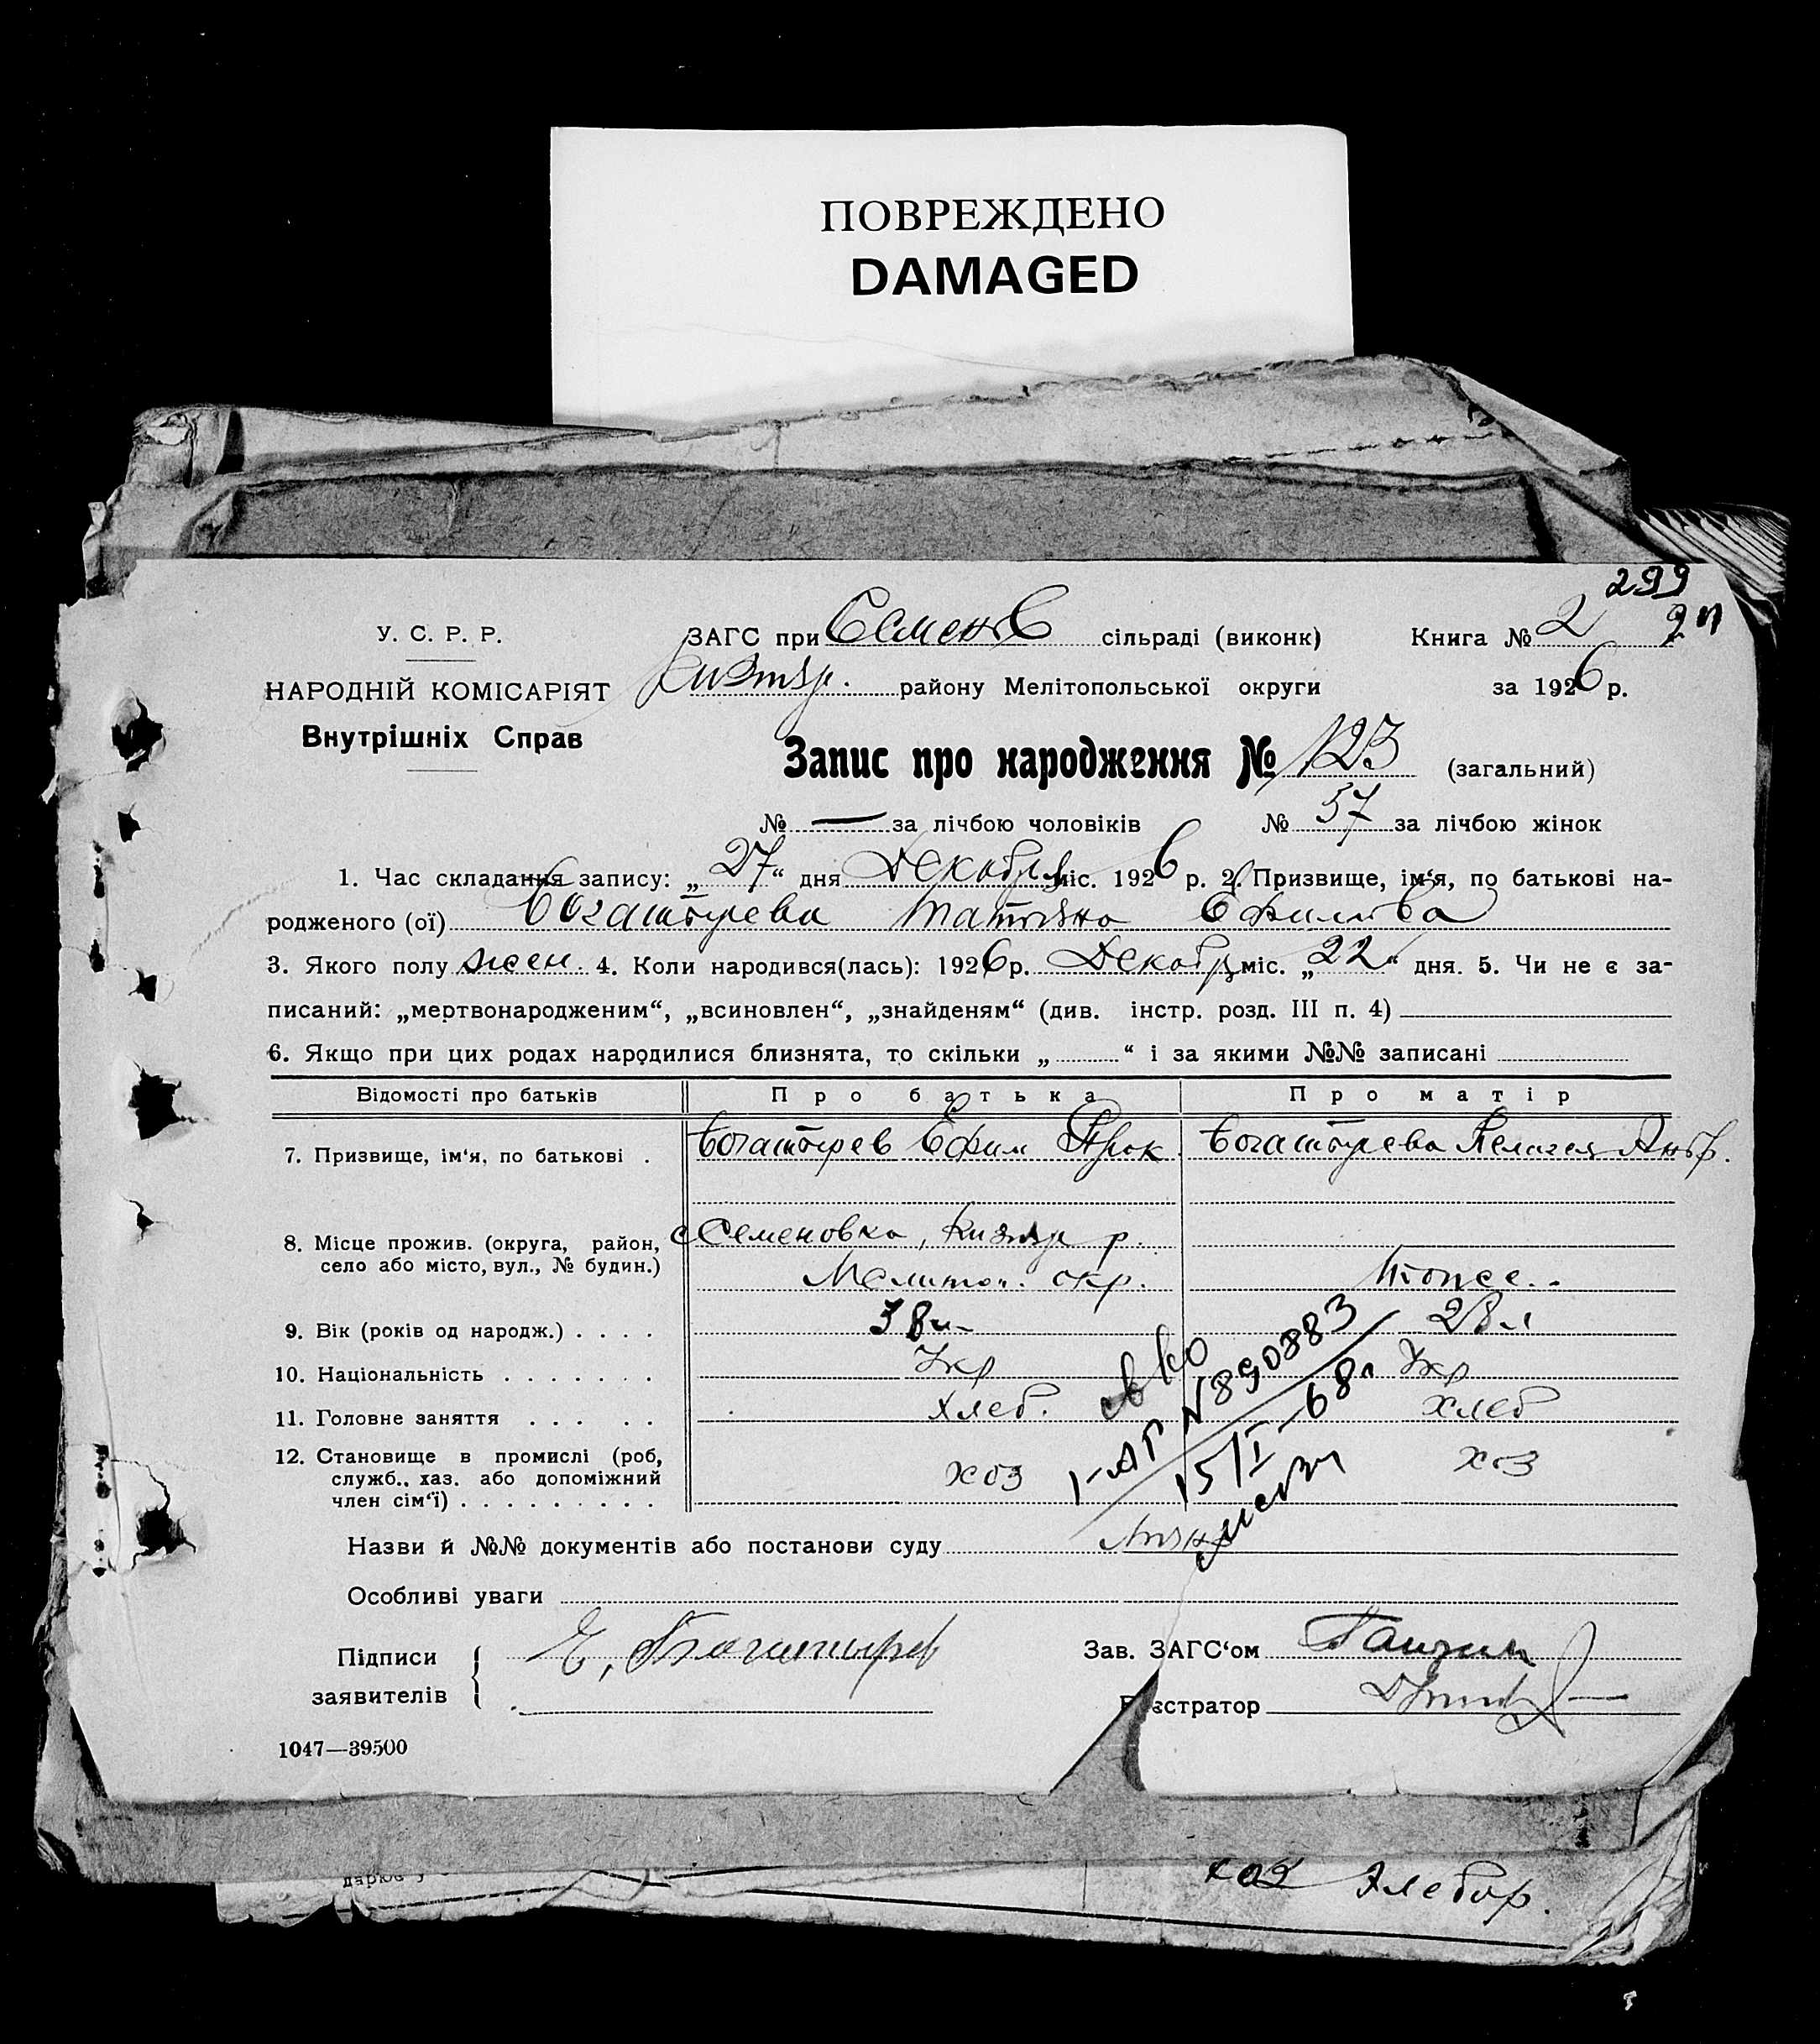 ПОВРЕЖДЕНО
DAMAGED
299
У. С. Р. Р.
ЗАГС при Семенів сільраді (виконк) Книга № 2
НАРОДНІЙ КОМІСАРІЯТ
району Мелітопольської округи за 1926 р.
Внутрішніх Справ
Запис про народження № 123 (загальний)
№ — за лічбою чоловіків № 57 за лічбою жінок
1. Час складання запису: „27“ дня Декабря міс. 1926 р. 2. Призвище, ім‘я, по батькові на-
родженого (ої) Богатырева Татьяна Ефимова
3. Якого полу жен. 4. Коли народився(лась): 1926 р. Декабр міс. „22“ дня. 5. Чи не є за-
писаний: „мертвонародженим“, „всиновлен“, „знайденям“ (див. інстр. розд. III п. 4)
6. Якщо при цих родах народилися близнята, то скільки „ “ і за якими №№ записані
Відомості про батьків Про батька Про матір
7. Призвище, ім‘я, по батькові . Богатырев Ефим Прок Богатырева Пелагея Андр.
8. Місце прожив. (округа, район, с Семеновка, Кизияр р.
село або місто, вул., № будин.) Мелитоп. окр. Тоже
9. Вік (років од народж.) . . . . 38 28
10. Національність . . . . . . . Укр Укр
11. Головне заняття . . . . . Хлеб. Хлеб
12. Становище в промислі (роб,
служб., хаз. або допоміжний хоз хоз
член сім‘ї) . . . . . . . . .
I-АП №890883
15/I-68г
Назви й №№ документів або постанови суду
Особливі уваги
Підписи Е. Богатырев Зав. ЗАГС‘ом
заявителів
Реєстратор
1047—39500
хоз Хлебор.